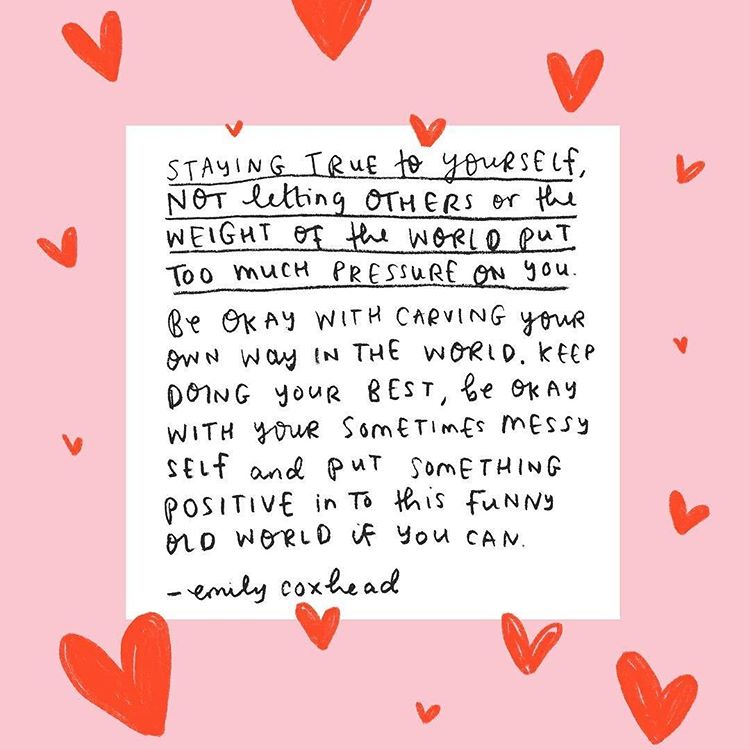 STAYING TRUE to yOURSELF,
NOT letting OTHERS or the
WEIGHT OF the WORLD PUT
TOO MUCH PRESSURE ON YOU.
Be OKAY WITH CARVING your
OWN Way IN THE WORLD. KEEP
DOING your BEST, be OKAY
WITH your SOMETIMES MESSY
SELF and PUT SOMETHING
POSITIVE in To this FUNNY
OLD WORLD if YOU CAN.
- emily coxhead